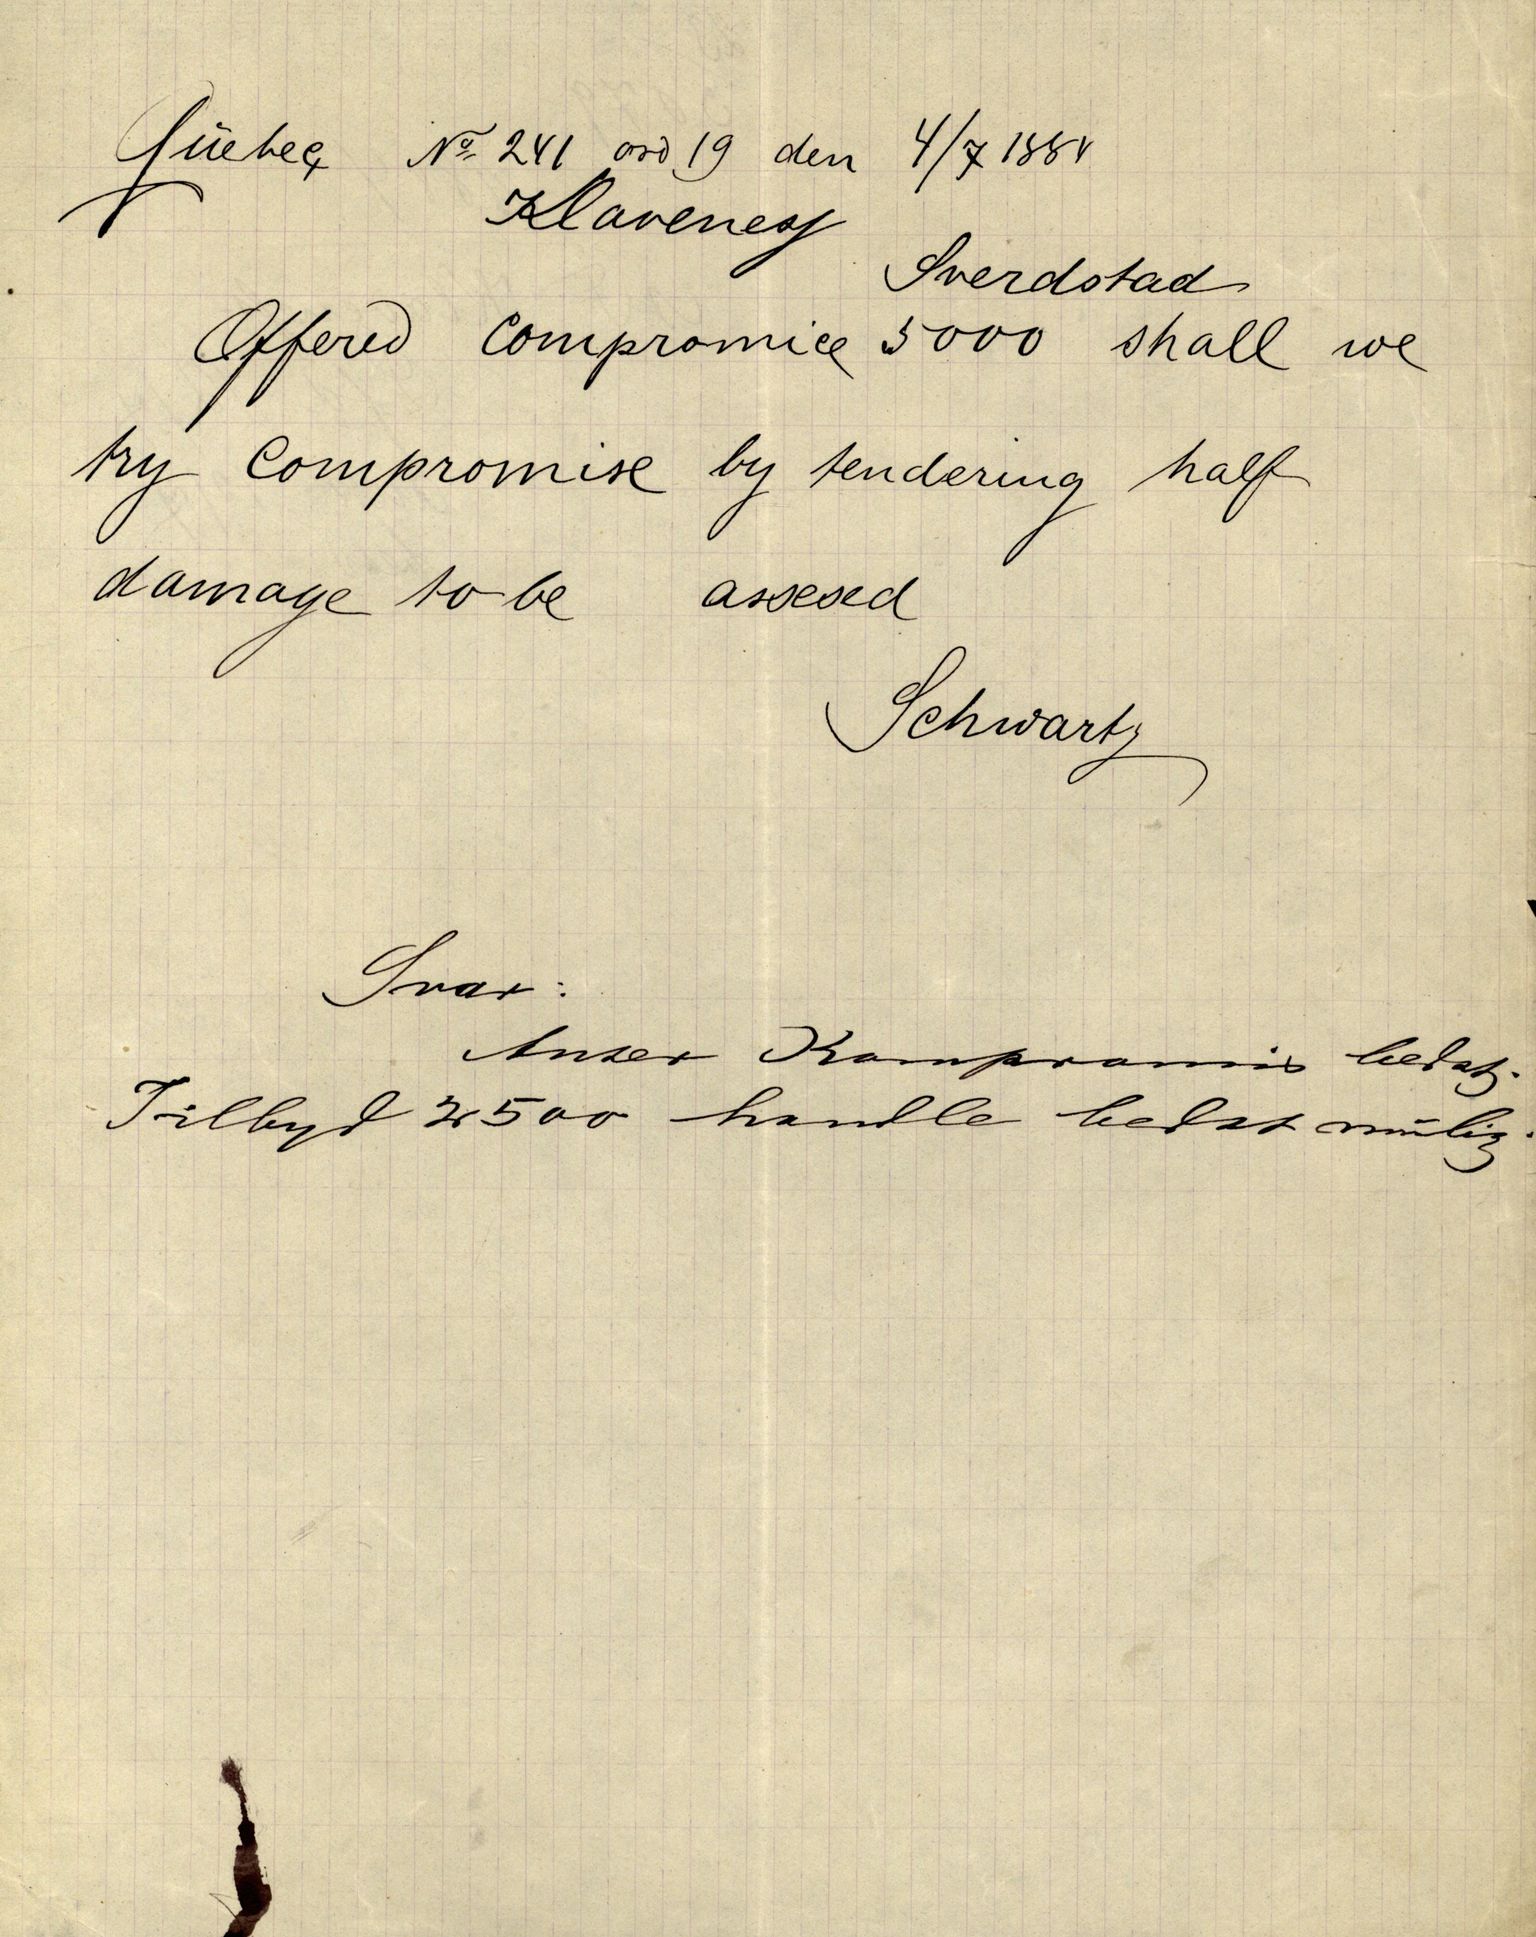 Quebec No 241 ord 19 den 4/7 1884
Klaveness
Sverdstad
Offered compromice 5000 shall we
try compromise by tendering half
damage to be assesed
Schwartz
Svar:
Anser Kompromis bedst.
Tilbyd 2500 handle bedst mulig.